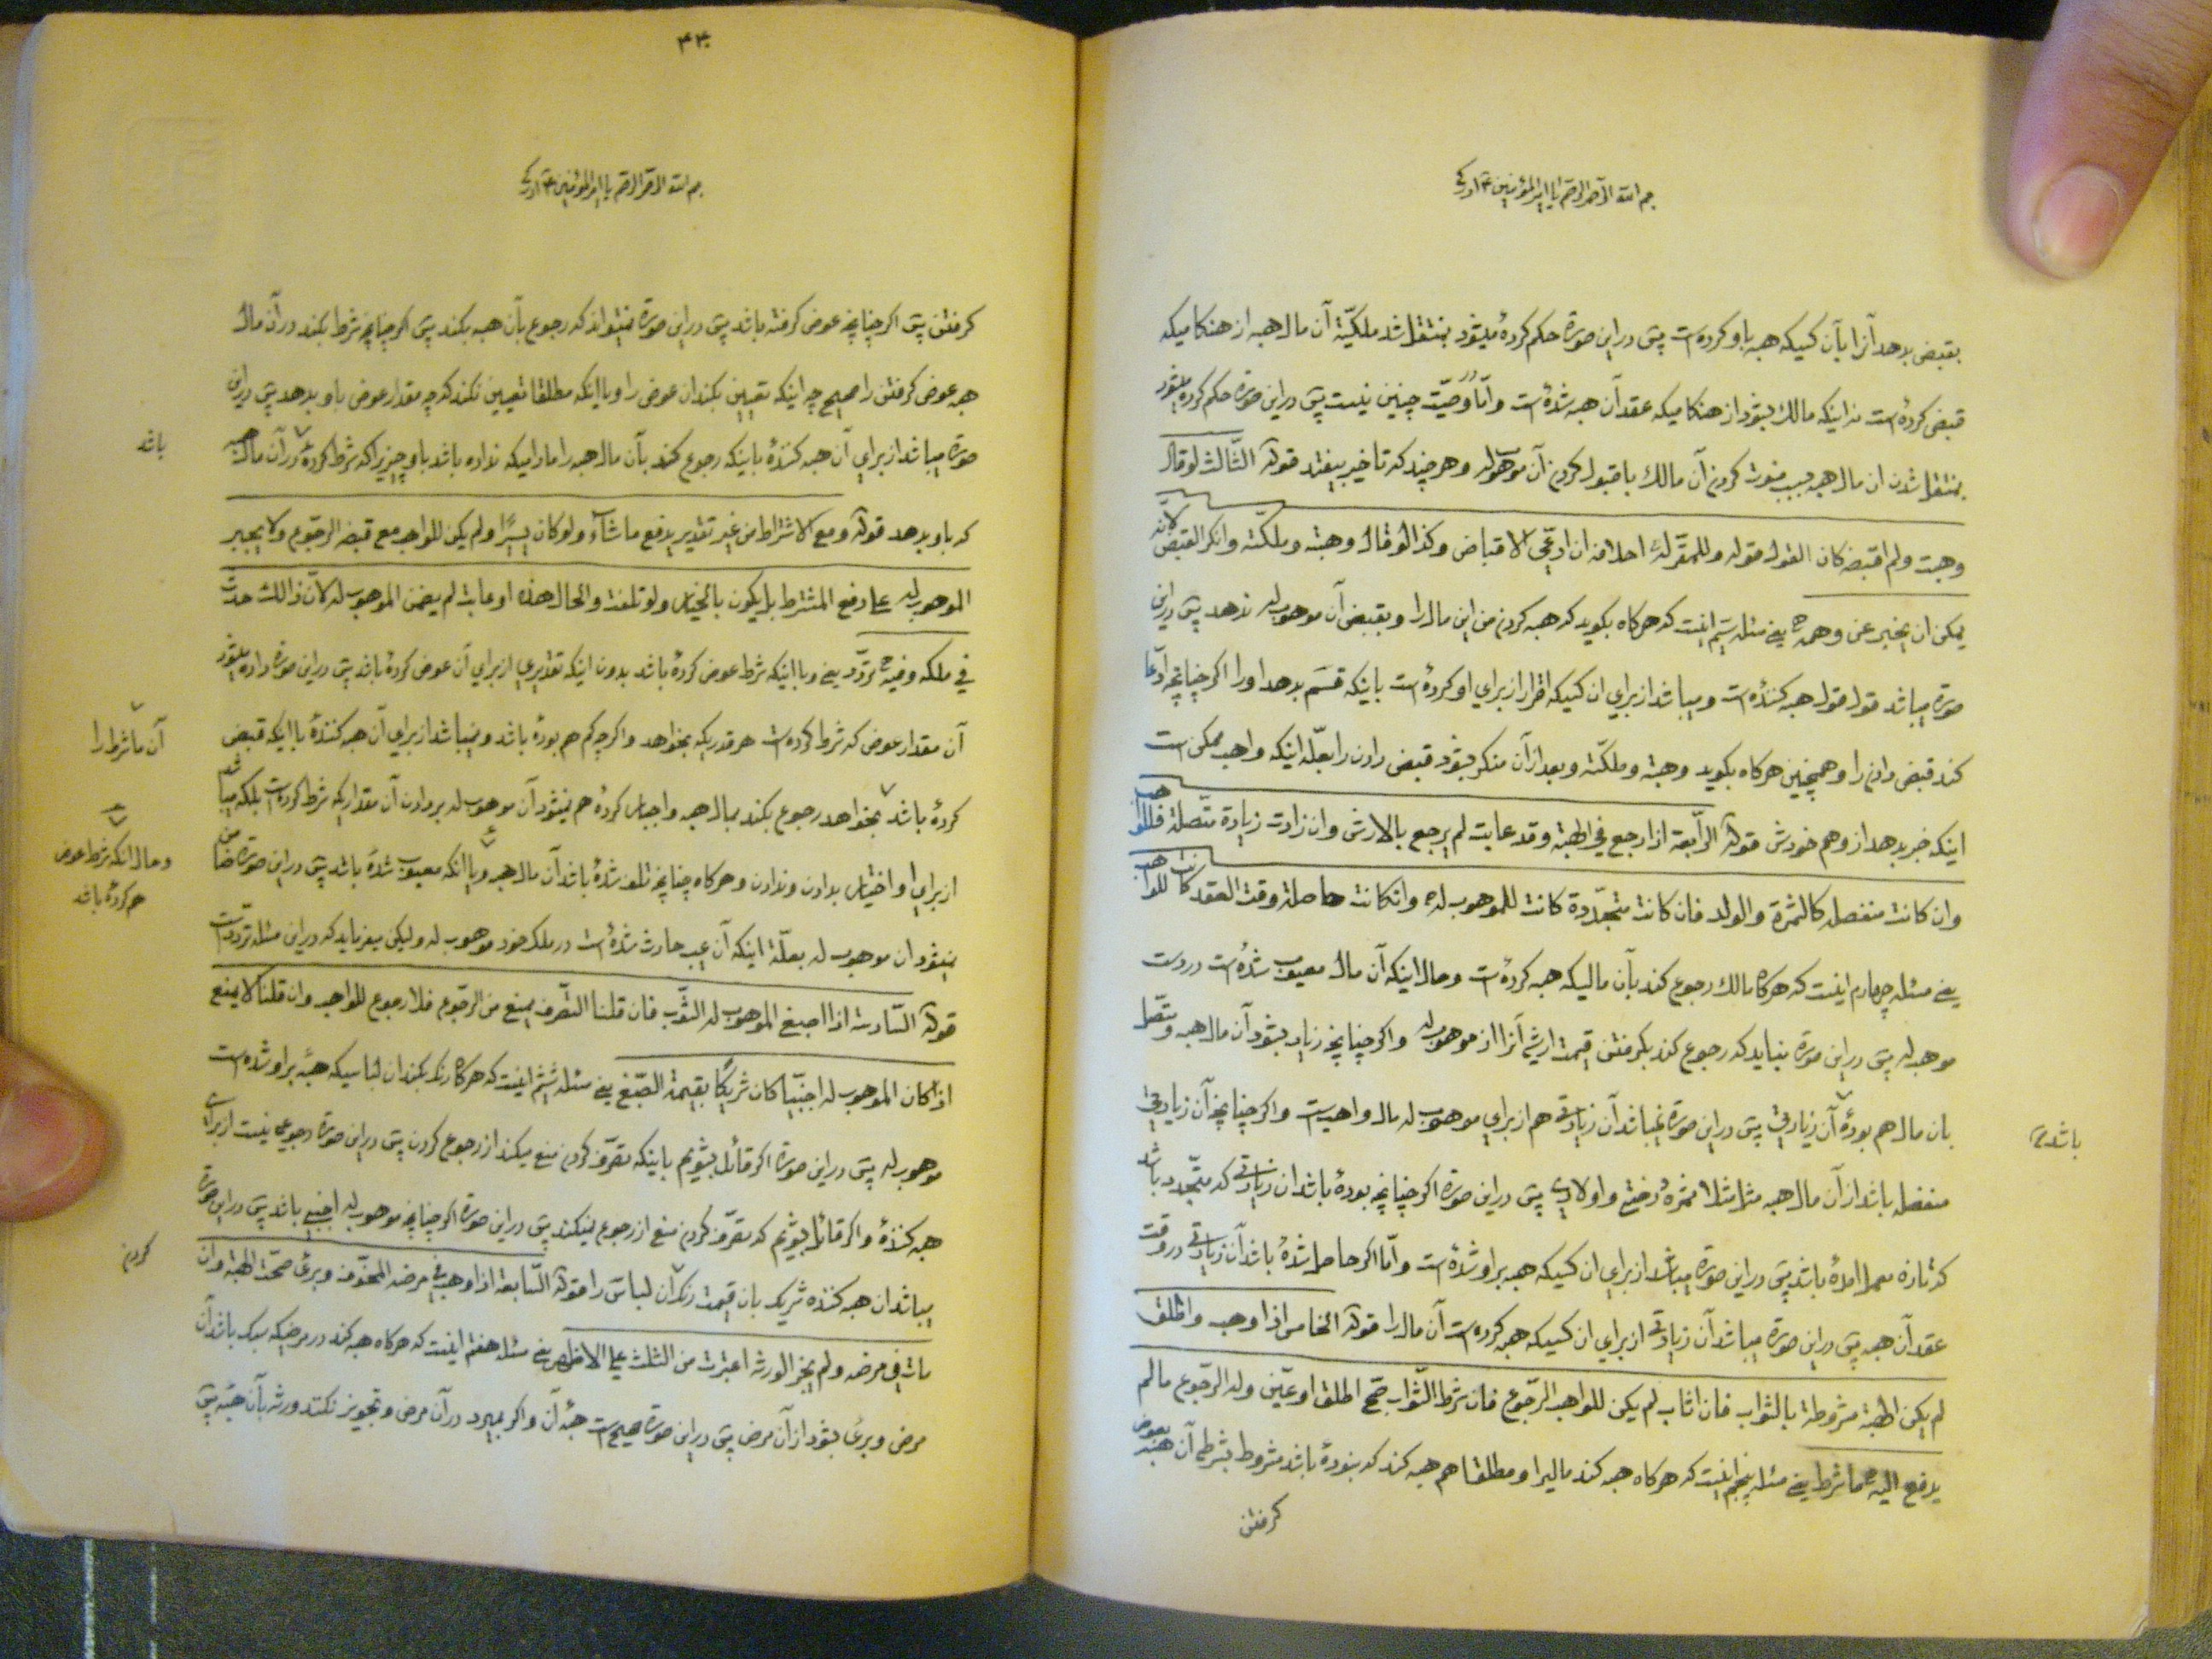 بسم الله الرحمن الرحیم یا امیرالمؤمنین ع ادرکنی
بقبض بدهد آنرا بآن کسیکه هبه باو کرده‌است پس دراین صورة حکم کردهٔ میشود بمنتقل شد ملکیّة آن مال هبه از هنکامیکه
قبض کردهٔ است نه اینکه مالك بشود از هنکامیکه عقد آن هبه شدهٔ است وامّا در وصیّت چنین نیست پس دراین صورة حکم کرده میشود
بمنتقل شدن ان مال هبه بسبب فوت کردن آن مالك با قبول کردن آن موهوبله وهرچند که تاخیر بیفتد قوله الثّالث لو قال
وهبت ولم اقبضه کان القول قوله وللمقرّ له احلافه ان ادّعی الاقباض وکذا لو قال وهبته وملکّته وانکر القبض لانّه
یمکن ان یخبر عن وهمه یعنی مسئله سیّم اینست که هرکاه بکوید که هبه کردن من این مال را وبقبض آن موهوب له ندهد پس دراین
صورة میباشد قول قول هبه کنندهٔ است ومیباشد از برای ان کسیکه اقرار از برای او کردهٔ است باینکه قسم بدهد اورا اکر چنانچه ادّعا
کند قبض دادن را وهمچنین هرکاه بکوید وهبته وملکّته وبعد از آن منکر بشود قبض دادن را بعلّه اینکه واهب ممکن است
اینکه خبر بدهد از وهم خودش قوله الرّابعة اذا رجع فی الهبة وقد عابت لم یرجع بالارش وان زادت زیادة متّصلة فللواهب
وان کانت منفصله کالثمرة والولد فان کانت متجدّدة کانت للموهوب له وان کانت حاصلة وقت العقد کانت للواهب
یعنی مسئله چهارم اینست که هرکاه مالك رجوع کند بآن مالیکه هبه کردهٔ ست وحال اینکه آن مال معیوب شدهٔ است در دست
موهبله پس دراین صورة نباید که رجوع کند بکرفتن قیمت ارش آنرا از موهوب له واکر چنانچه زیاد بشود آن مال هبه ومتّصل
بان مال هم بودهٔ آن زیادتی پس دراین صورة میباشد آن زیادتی هم از برای موهوب له مال واهبست واکر چنانچه آن زیادتی
باشد
منفصل باشد از آن مال هبه مثل مثلا ثمرهٔ درختی واولادی پس دراین صورة اکر چنانچه بودهٔ باشد ان زیادتی که متجدّد باشد
که تازه بعمل امدهٔ باشد پس دراین صورة میباشد از برای ان کسیکه هبه براو شدهٔ است وامّا اکر حاصل شدهٔ باشد آن زیادتی دروقت
عقد آن هبه پس دراین صورة میباشد آن زیادتی از برای ان کسیکه هبه کرده‌است آن مال را قوله الخامس اذا وهب واطلق
لم یکن الهبة مشروطة بالثواب فان اثاب لم یکن للواهب الرّجوع فان شرط الثّواب صحّ اطلق او عیّن وله الرّجوع مالم
یدفع الیه ما شرط یعنی مسئله پنجم اینست که هرکاه هبه کند مالیرا ومطلقا هم هبه کند که نبودهٔ باشد مشروط بشرطی آن هبه بعوض
کرفتن
۴۳۰
بسم الله الرحمن الرحیم یا امیرالمؤمنین ع ادرکنی
کرفتن پس اکر چنانچه عوض کرفته باشد پس دراین صورة نمیتواند که رجوع بآن هبه بکند پس اکر چنانچه شرط بکند درآن مال
هبه عوض کرفتن را صحیح چه اینکه تعیین بکند ان عوض را ویا اینکه مطلقا تعیین نکند که چه مقدار عوض باو بدهد پس دراین
صورة میباشد از برای آن هبه کنندهٔ باینکه رجوع کند بآن مال هبه را مادامیکه نداده باشد باو چیزیرا که شرط کردهٔ درآن مال هبه
باشد
که باو بدهد قوله ومع الاشتراط من غیر تقدیر یدفع ما شاء ولو کان یسیرًا ولم یکن للواهب مع قبضه الرجوع ولا یجبر
الموهوب له علی دفع المشترط بل یکون بالخیار ولو تلفت والحال هذه او عابت لم یضمن الموهوب له لانّ ذالك حدث
فی ملکه وفیه تردّد یعنی وبا اینکه شرط عوض کردهٔ باشد بدون اینکه تقدیری از برای آن عوض کردهٔ باشد پس دراین صورة داده میشود
آن مقدار عوض که شرط کرده‌است هر قدریکه بخواهد واکرچه کم هم بودهٔ باشد ونمیباشد از برای آن هبه کنندهٔ با اینکه قبض
آن ما شرط را
کردهٔ باشد بخواهد رجوع بکند بمال هبه واجبار کردهٔ هم نمیشود آن موهوب له بر دادن آن مقداریکه شرط کردهٔ است بلکه میباشد
از برای او اختیار بدادن وندادن وهرکاه چنانچه تلف شدهٔ باشد آن مال هبه ویا انکه معیوب شدهٔ باشد پس دراین صورة ضامن
وحال انکه شرط عوض
هم کردهٔ باشد
نمیشود ان موهوب له بعلّة اینکه آن عیب حادث شدهٔ است در ملك خود موهوب له ولیکن میفرماید که دراین مسئله تردّدست
قوله السّادسه اذا اصبغ الموهوب له الثّوب فان قلنا التّصرّف یمنع من الرّجوع فلا رجوع للواهب وان قلنا لا یمنع
اذا کان الموهوب له اجنبیّا کان شریکًا بقیمة الصّبغ یعنی مسئله ششم اینست که هرکاه رنك بکند ان لباسیکه هبهٔ براو شده است
موهوب له پس دراین صورة اکر قائل بشویم باینکه تصرّف کردن منع میکند از رجوع کردن پس دراین صورة رجوعی نیست از برای
هبه کنندهٔ واکر قائل بشویم که تصرّف کردن منع از رجوع نمیکند پس دراین صورة اکر چنانچه موهوب له اجنبی باشد پس دراین صورة
میباشد ان هبه کننده شریك بان قیمت رنك آن لباس را قوله السّابعة اذا وهب فی مرضه المخوّف وبریٔ صحّت الهبة وان
کردن
مات فی مرضه ولم یجز الورثه اعتبرت من الثلث علی الاظهر یعنی مسئله هفتم اینست که هرکاه هبه کند در مرضیکه باشد آن
مرض وبریٔ بشود از آن مرض پس دراین صورة صحیح است هبهٔ آن واکر بمیرد در آن مرض وتجویز نکنند ورثه بآن هبه پس